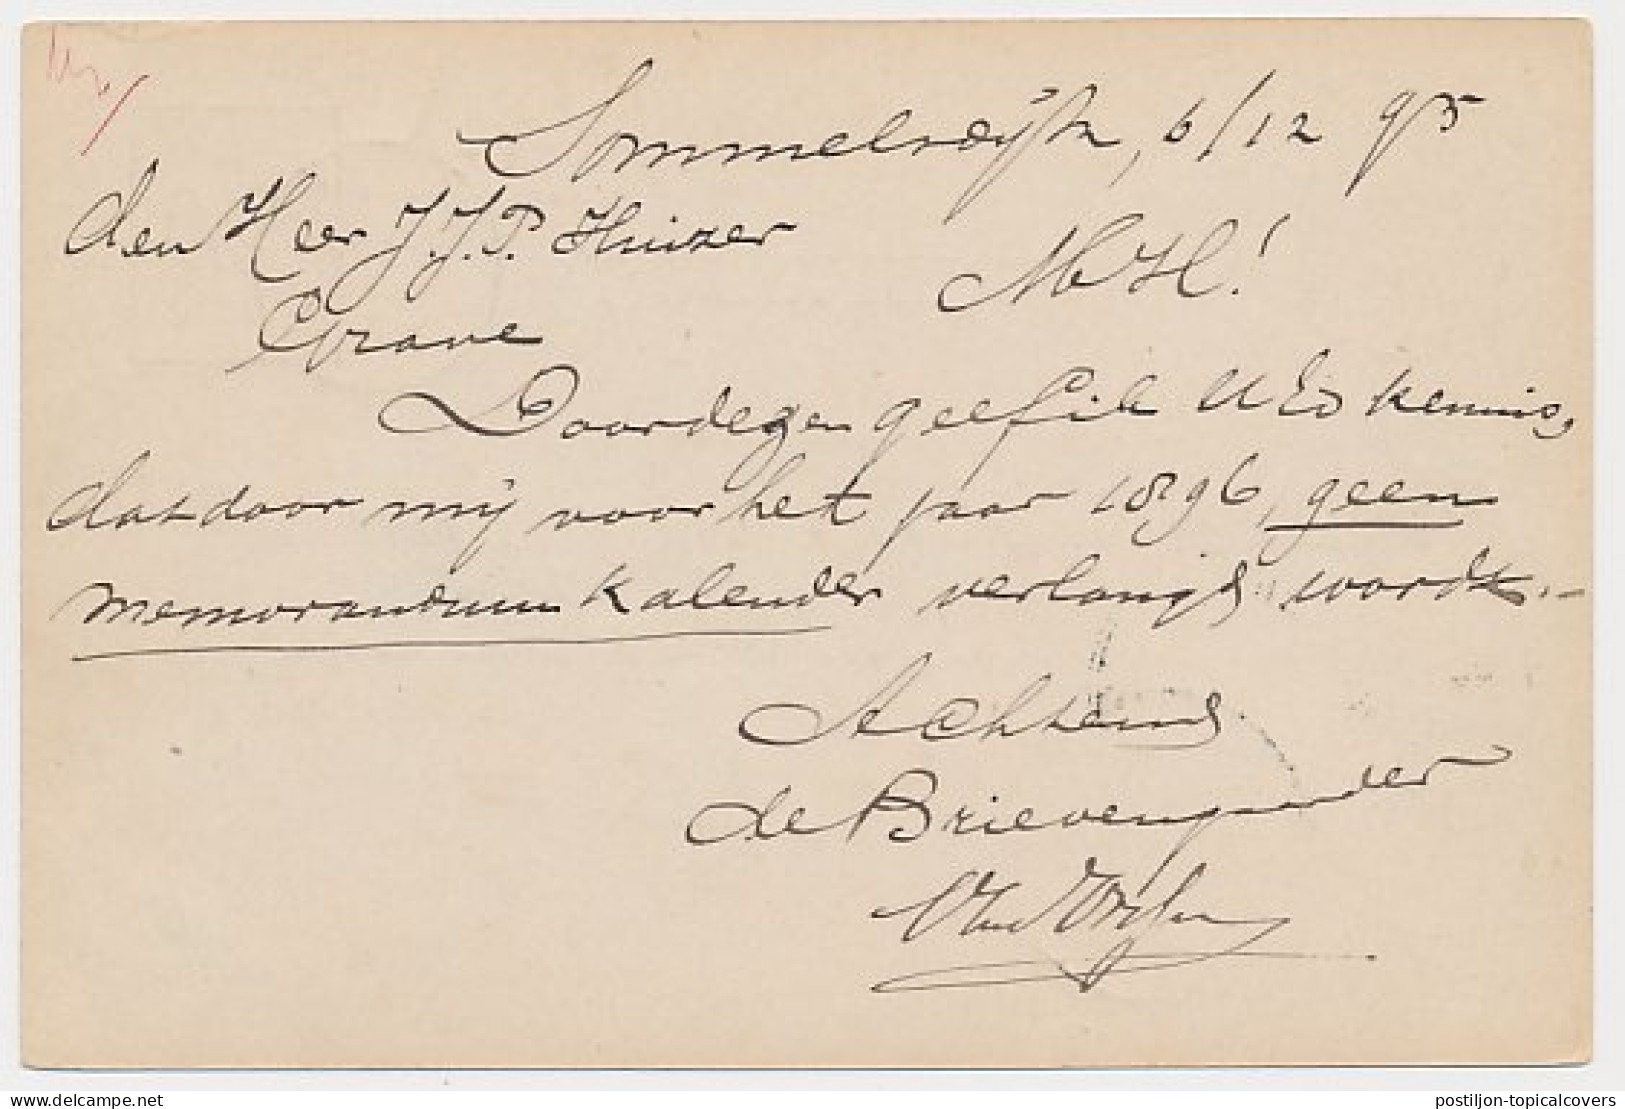 Sommelsdijk, 6/12 95
den Heer J.J.P. Huizer
MH!
Grave
Door dezen geef ik UEd kennis,
dat door mij voor het jaar 1896, geen
memorandum kalender verlangd wordt.-
Achtend
de Brievengaarder
for sale by: onetreehorse
postiljon-topicalcovers